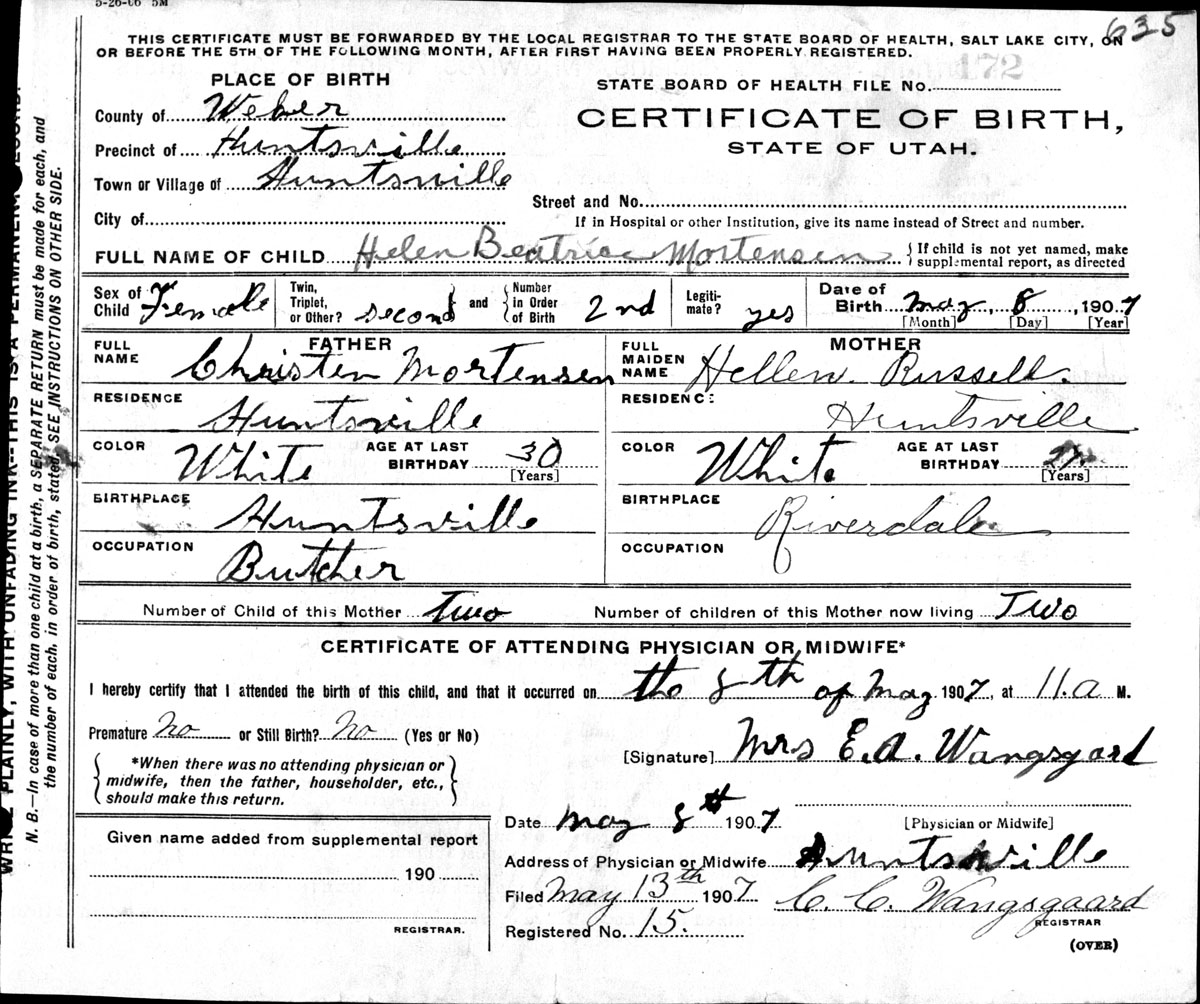 5-26-06 5M
635
172
THIS CERTIFICATE MUST BE FORWARDED BY THE LOCAL REGISTRAR TO THE STATE BOARD OF HEALTH, SALT LAKE CITY, ON
OR BEFORE THE 5TH OF THE FOLLOWING MONTH, AFTER FIRST HAVING BEEN PROPERLY REGISTERED.
PLACE OF BIRTH
County of Weber
Precinct of Huntsville
Town or Village of Huntsville
City of
STATE BOARD OF HEALTH FILE No.
CERTIFICATE OF BIRTH,
STATE OF UTAH.
Street and No.
If in Hospital or other Institution, give its name instead of Street and number.
FULL NAME OF CHILD Helen Beatrice Mortensen {If child is not yet named, make
supplemental report, as directed
Sex of Child Female
Twin, Triplet, or Other? second and Number in Order of Birth 2nd
Legitimate? yes
Date of Birth May 8, 1907
[Month] [Day] [Year]
FATHER
FULL NAME Christen Mortensen
RESIDENCE Huntsville
COLOR White AGE AT LAST BIRTHDAY 30
[Years]
BIRTHPLACE Huntsville
OCCUPATION Butcher
MOTHER
FULL MAIDEN NAME Hellen Russell.
RESIDENCE Huntsville
COLOR White AGE AT LAST BIRTHDAY
[Years]
BIRTHPLACE Riverdale
OCCUPATION
Number of Child of this Mother Two Number of children of this Mother now living Two
CERTIFICATE OF ATTENDING PHYSICIAN OR MIDWIFE*
I hereby certify that I attended the birth of this child, and that it occurred on the 8th of May 1907, at 11.a M.
Premature No or Still Birth? No (Yes or No)
[Signature] Mrs E.A. Wangsgard
{*When there was no attending physician or
midwife, then the father, householder, etc.,
should make this return.}
Date May 8th 1907
[Physician or Midwife]
Given name added from supplemental report
190
REGISTRAR.
Address of Physician or Midwife Huntsville
Filed May 13th 1907 C. C. Wangsgaard
REGISTRAR
Registered No. 15.
(OVER)
PLAINLY, WITH UNFADING INK--THIS IS A PERMANENT RECORD.
N. B.—In case of more than one child at a birth, a SEPARATE RETURN must be made for each, and
the number of each, in order of birth, stated. SEE INSTRUCTIONS ON OTHER SIDE.